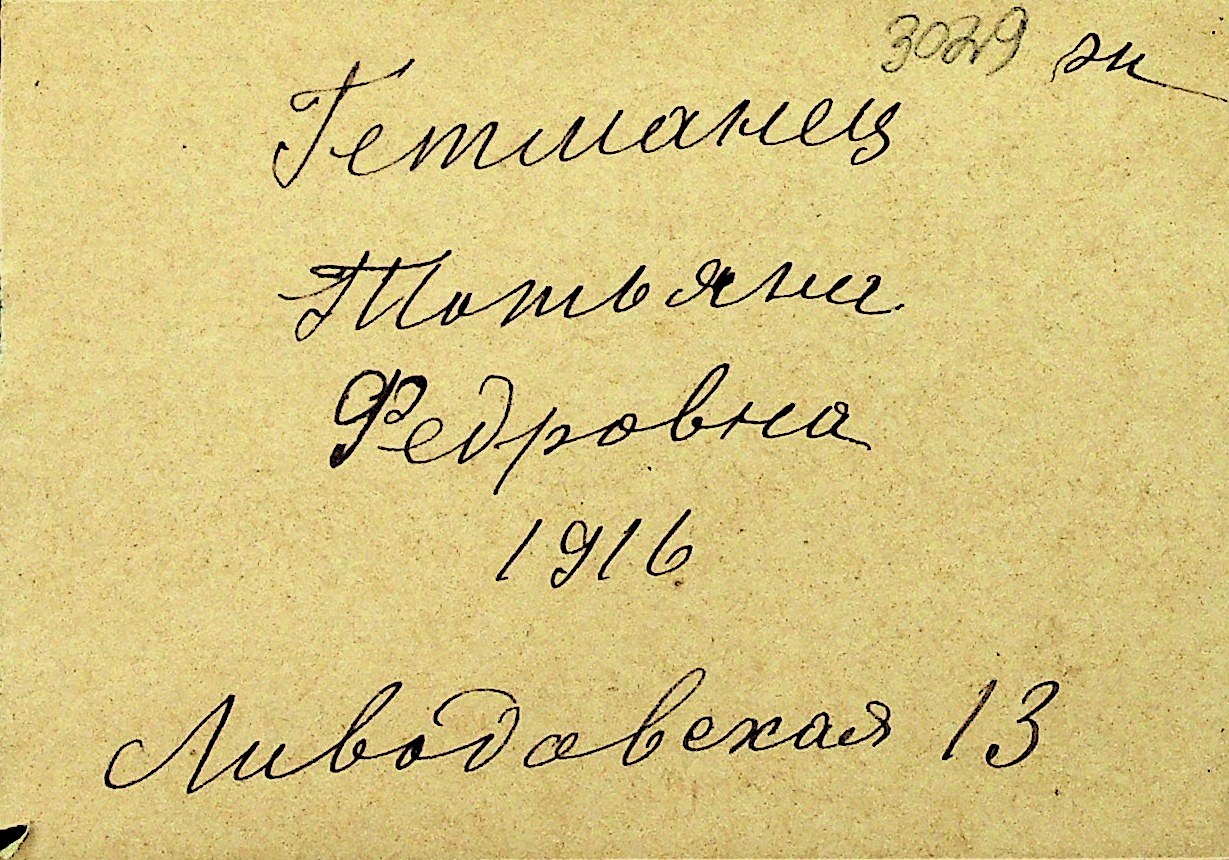 3029 эк
Гетманец
Татьяна
Федровна
1916
Ливодавская 13